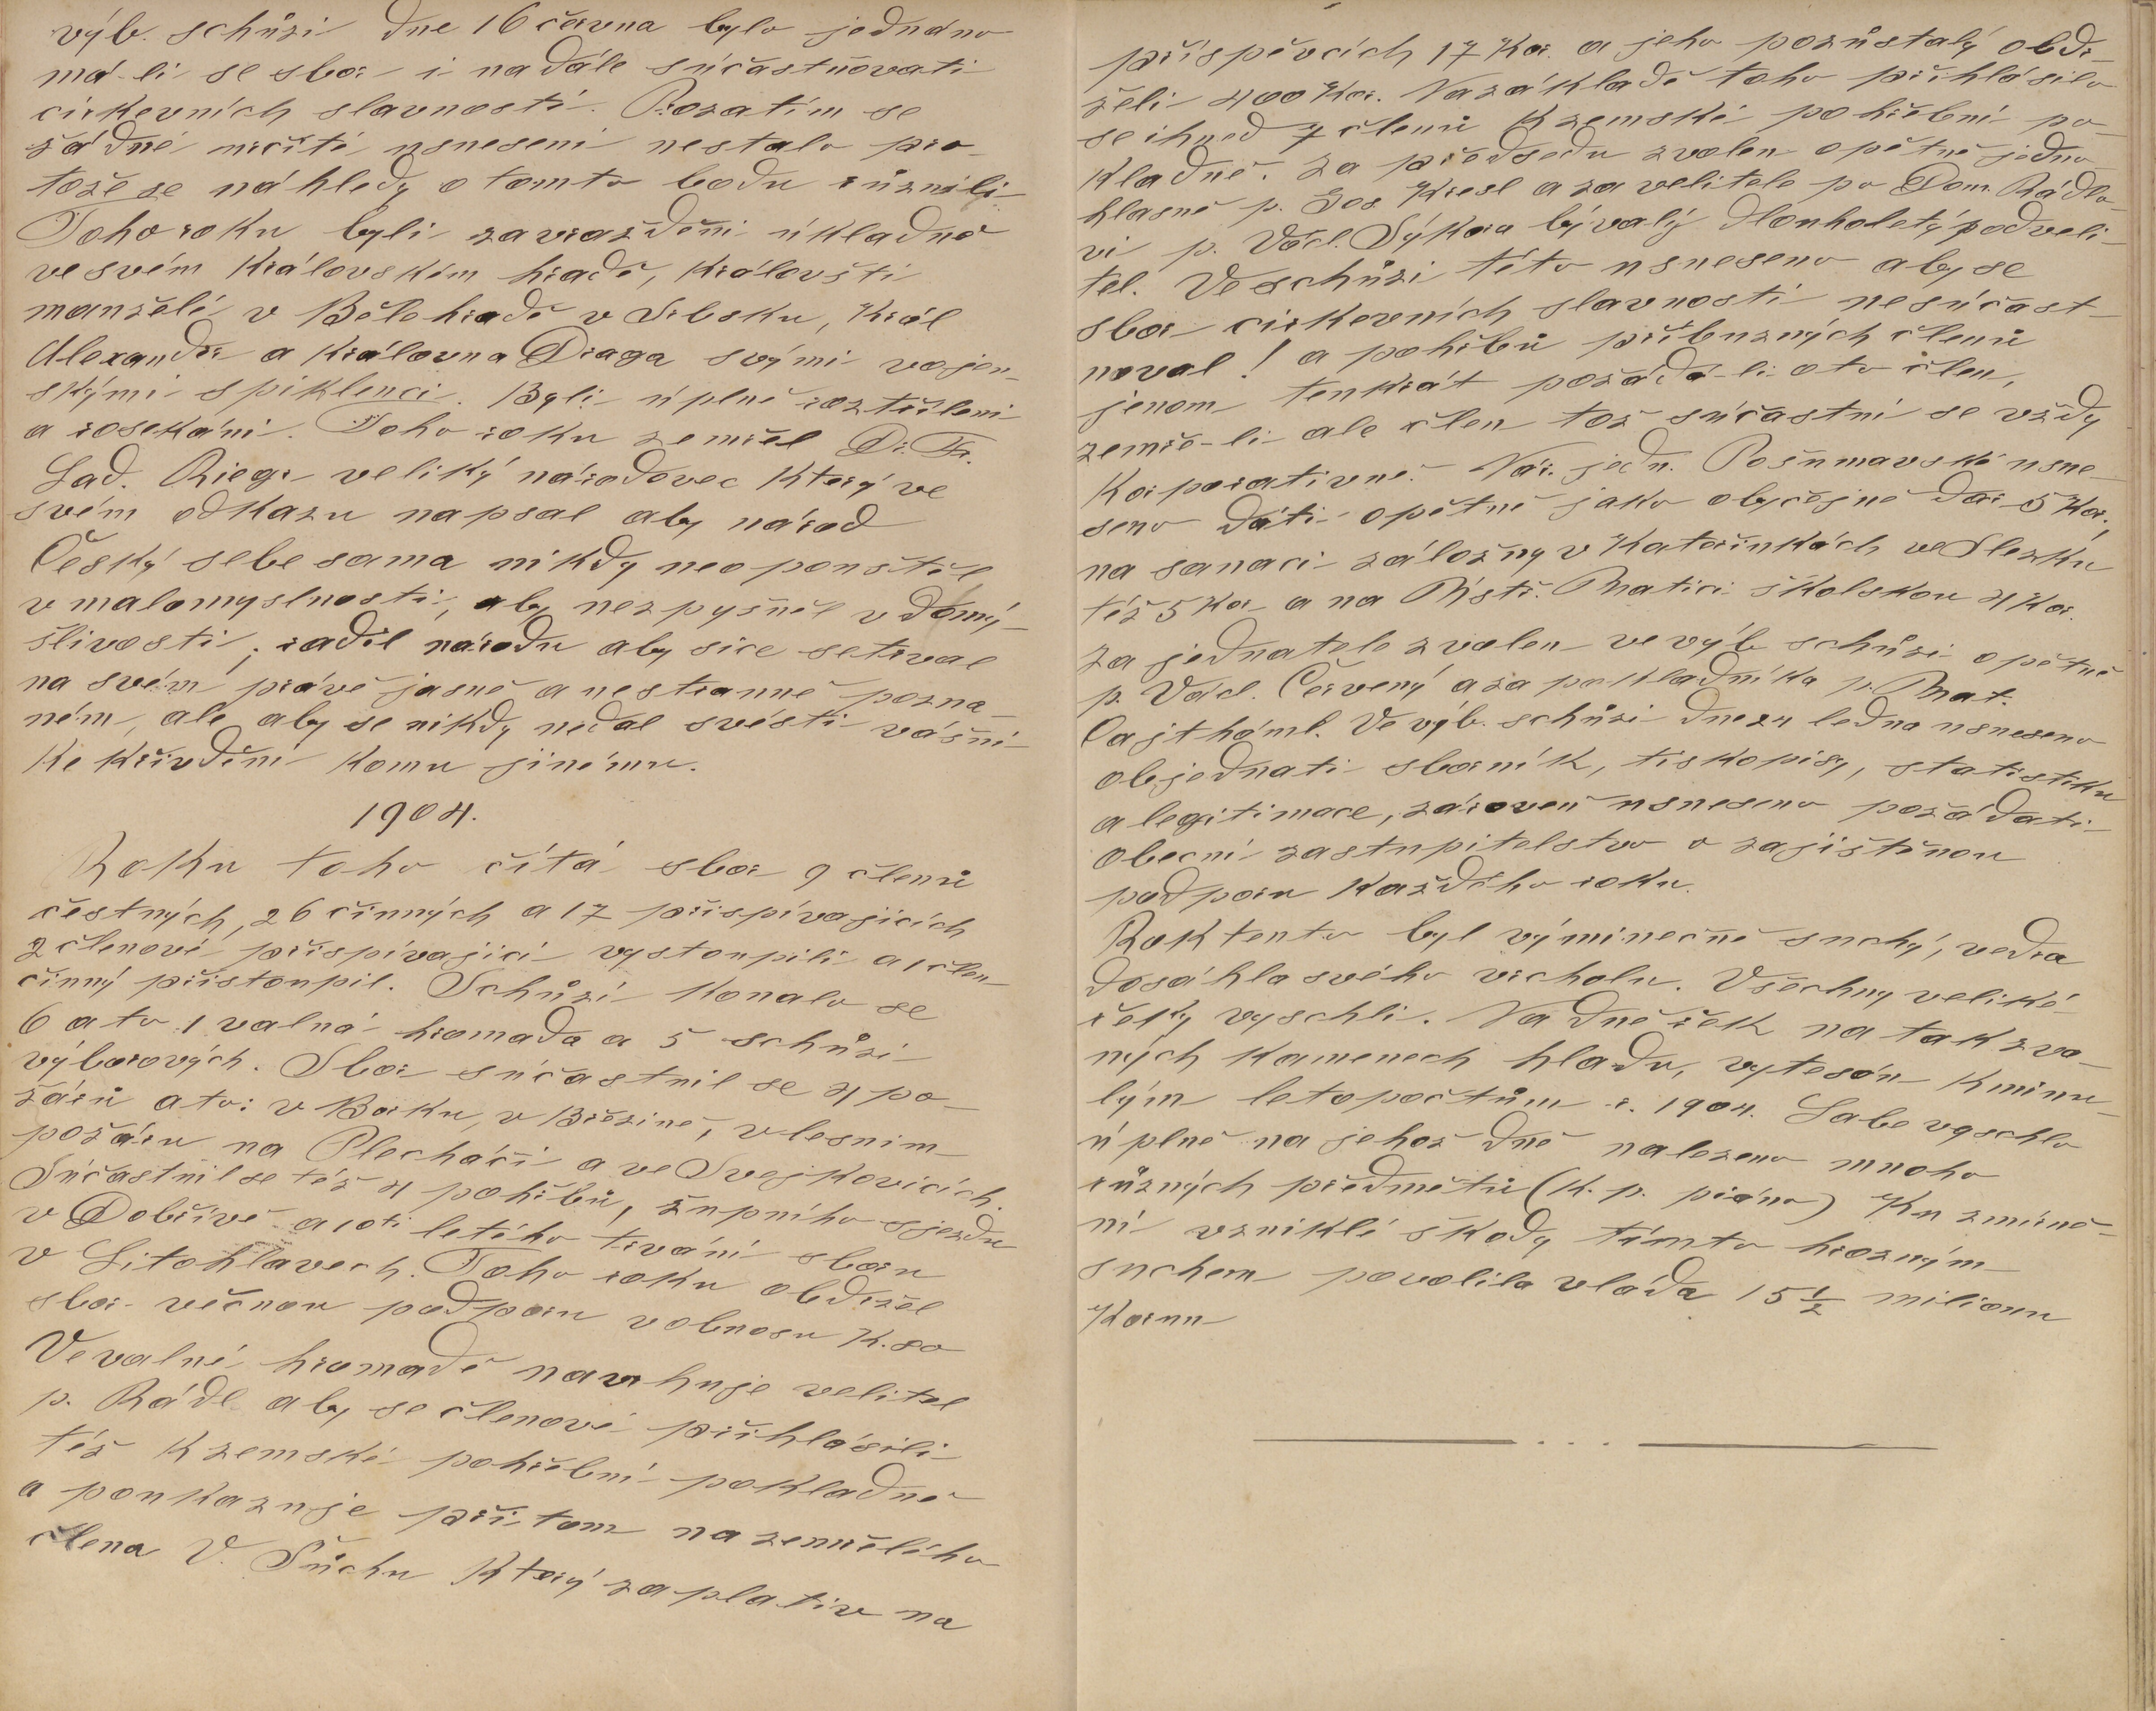 výb. schůzi dne 16 června bylo jednáno
má-li se sbor i nadále súčastňovati
církevních slavností. Prozatím se
žádné určité usnesení nestalo pro-
tože se náhledy o tomto bodu různili
Toho roku byli zavražděni úkladně
ve svém královském hradě, královští
manželé v Bělehradě v Srbsku, král
Alexandr a královna Draga svými vojen-
skými spiklenci. Byli úplně roztříleni
a rosekáni. Toho roku zemřel Dr. Fr.
Lad. Riegr veliký národovec který ve
svém odkazu napsal aby národ
Český sebe sama nikdy neopouštěl
v malomyslnosti, aby nezpyšněl v domý-
šlivosti; radil národu aby sice setrval
na svém právě jasně a nestranně pozna-
ném, ale aby se nikdy nedal svésti vášní
ke křivdění komu jinému.
1904.
Roku toho čítá sbor 9 členů
čestných, 26 činných a 17 přispívajících
2 členové přispívající vystoupili a 1 člen
činný přistoupil. Schůzí konalo se
6 a to 1 valná hromada a 5 schůzí
výborových. Sbor súčastnil se 4 po-
žárů a to: v Borku, v Březině, v lesním
požáru na Plecháči a ve Svejkovicích.
Súčastnil se též 4 pohřbů, župního sjezdu
v Dobřívě a 10ti letého trvání sboru
v Litohlavech. Toho roku obdržel
sbor věčnou podporu v obnosu K. 80
Ve valné hromadě navrhuje velitel
p. Rádl aby se členové přihlásili
též k zemské pohřební pokladně
a poukazuje při tom na zemřelého
člena V. Sůchu který zaplativ na
příspěvcích 17 Kor. a jeho pozůstalý obdr-
želi 400 Kor. Na základě toho přihlásilo
se ihned 7 členů k zemské pohřební po-
kladně. Za předsedu zvolen opětně jedno-
hlasně p. Jos. Kresl a za velitele po Dom. Rádlo-
vi p. Václ. Sýkora bývalý dlouholetý podveli-
tel. Ve schůzi této usneseno aby se
sbor církevních slavností nesúčast-
ňoval! a pohřbů příbuzných členů
jenom tenkrát požádá-li o to člen,
zemře-li ale člen tož súčastní se vždy
korporativně. Nár. jedn. Pošumavské usne-
seno dáti opětně jako obyčejně dar 5 Kor.,
na sanaci záložny v Kateřinkách ve Slezku
též 5 Kor. a na Ústř. Matici školskou 4 Kor.
Za jednatele zvolen ve výb. schůzi opětně
p. Václ. Červený a za pokladníka p. Mat.
Cajthaml. Ve výb. schůzi dne 24 ledna usneseno
objednati sborník, tiskopisy, statistiku
a legitimace, zároveň usneseno požádati
obecní zastupitelstvo o zajištěnou
podporu každého roku.
Rok tento byl výminečně suchý, vedra
dosáhla svého vrcholu. Všechny veliké
řeky vyschli. Na dně řek na tak zva-
ných kamenech hladu, vytesán k minu-
lým letopočtům r. 1904. Labe vyschlo
úplně na jehož dně nalezeno mnoho
různých předmětů (k. p. piáno) Ku zmírně-
ní vzniklé škody tímto hrozným
suchem povolila vláda 15 ½ milionu
Korun